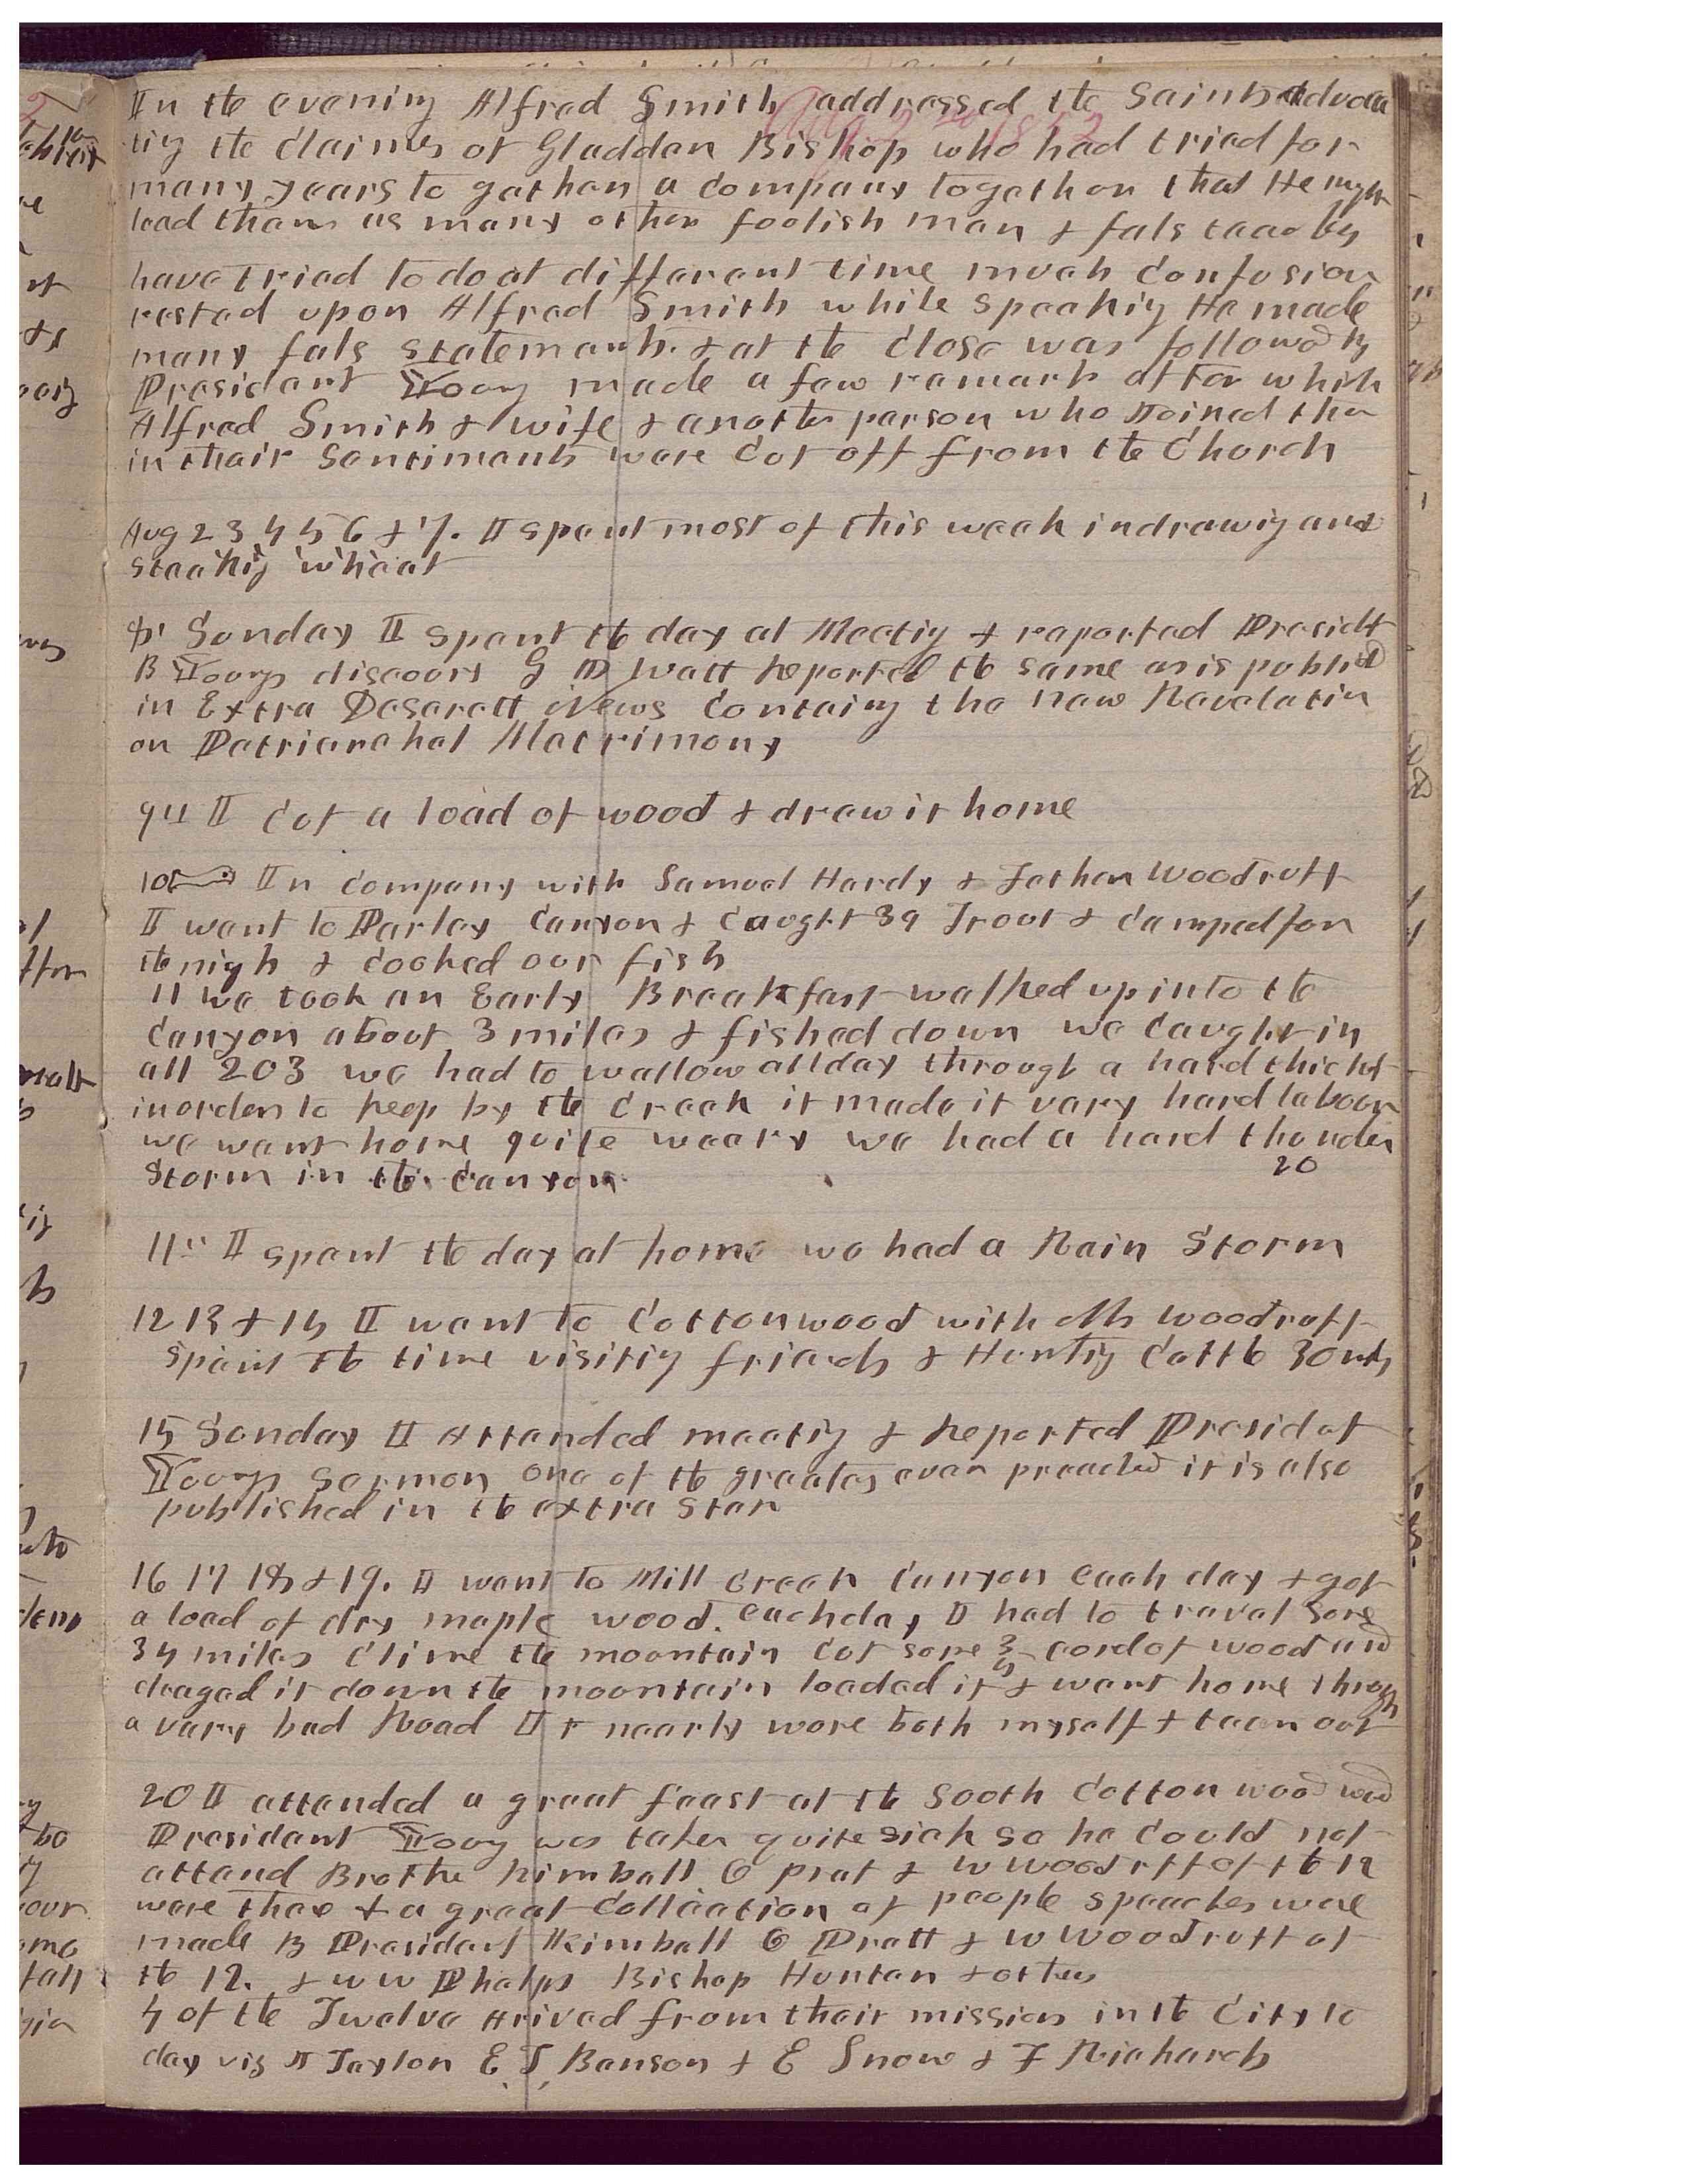 In the evening Alfred Smith addressed the Saints advoca
ting the claims of Gladden Bishop who had tried for
many years to gather a company together that He might
lead them as many other foolish men & fals teachers
have tried to do at different time much confusion
rested upon Alfred Smith while speaking He made
many fals statements. & at the close was followed by
President Young made a few remark after which
Alfred Smith & wife & another person who Joined them
in their Sentiments were cut off from the Church
Aug 2 3 4 5 6 & 7. I spent most of this week in drawing and
stacking wheat
8 Sunday I spent the day at Meeting & reported Presidt
B Youngs discours G D Watt Reported the same as is publid
in Extra Deserett News containg the New Revelatin
on Patriarchal Matrimony
9th I cut a load of wood & drew it home
10 In company with Samuel Hardy & Father Woodruff
I went to Parley Canyon & caught 39 Trout & camped for
the nigh & cooked our fish
11 we took an Early Breakfast walked up into the
canyon about 3 miles & fished down we caught in
all 203 we had to wallow all day through a hard thickt
in order to keep by the creek it made it very hard labour
we went home quite weary we had a hard thunder
Storm in the canyon
20
11th I spent the day at home we had a Rain Storm
12 13 & 14 I went to Cottonwood with Mrs Woodruff
spent the time visiting friends & Hunting cattle 30 mls
15 Sunday I Attended meeting & Reported Presidet
Youngs Sermon one of the greates ever preached it is also
published in the extra Star
16 17 18 & 19. I went to Mill creek canyon each day & got
a load of dry maple wood. each day I had to travel some
34 miles clime the mountain cut some 3/4 cord of wood and
draged it down the mountain loaded it & went home through
a very bad Road It nearly wore both myself & team out
20 I attended a great feast at the South Cotton wood ward
President Young was taken quite sick so he could not
attend Brothe Kimball O prat & W Woodruff of the 12
were thare & a great collection of people speaches were
made B President Kimball O Pratt & W Woodruff of
the 12. & W W Phelps Bishop Hunter & others
4 of the Twelve Arived from their mission in the City to
day viz J Taylor E. T. Benson & E Snow & F Richards